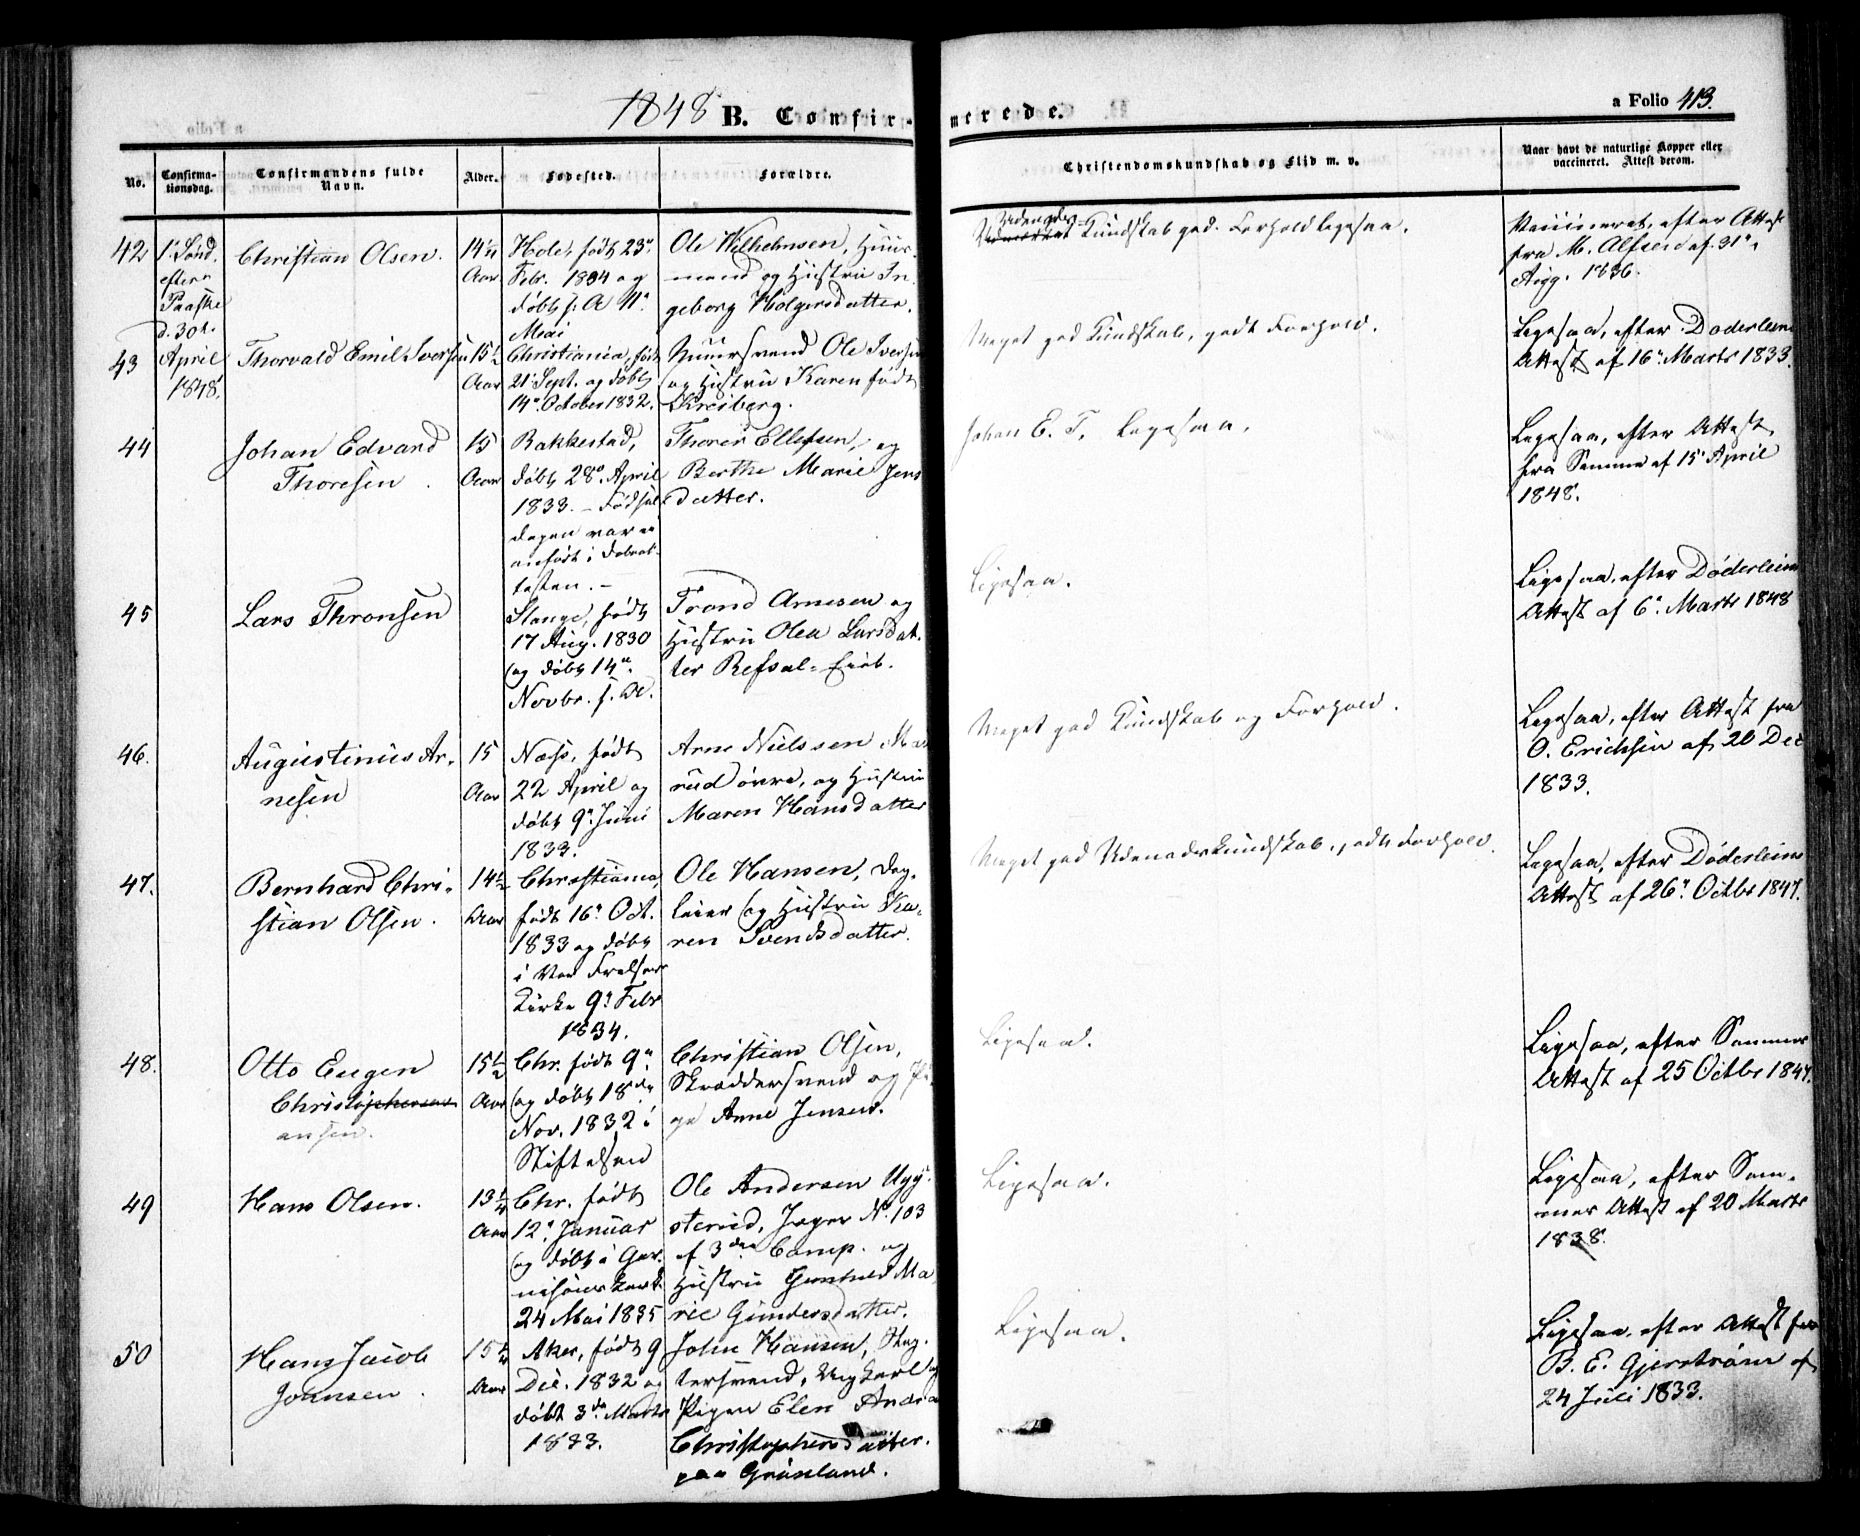 1848 B. Confirmerede.
a Folio 413.
No.
Confirma-
tionsdag.
Confirmandens fulde
Navn.
Alder.
Fødested.
Forældre.
Christendomskundskab og Flid m. v.
Naar havt de naturlige Kopper eller
vaccineret. Attest derom.
42
1. Sønd.
efter
Paaske
d. 30te
April
1848.
Christian Olsen.
14 1/4
Aar
Hole, født 23de
Febr. 1834 og
døbt s. A. 11te
Mai
Ole Wilhelmsen, Huus-
mand og Hustru In-
geborg Holgersdatter.
Udenads Kundskab god. Forhold ligesaa.
Vaccineret, efter Attest
fra M. Alfsen af 31te
Aug. 1836.
43
Thorvald Emil Iversen
15 1/2
Aar
Christiania, født
21. Sept. og døbt
14de October 1832.
Muursvend Ole Iversen
og Hustru Karen født
Kreiberg.
Meget god Kundskab, godt Forhold.
Ligesaa, efter Døderleins
Attest af 16de Marts 1833.
44
Johan Edvard
Thoresen.
15
Aar
Rakkestad,
døbt 28de April
1833. – Fødsels
dagen var ei
anført i Døbeat-
testen. –
Thorer Ellefsen, og
Berthe Marie Jens
datter.
Johan E. T. Ligesaa.
Ligesaa, efter Attest
fra Samme af 15 April
1848.
45
Lars Thronsen
Stange, født
17 Aug. 1830
og døbt 14de
Novbr. s. A.
Trond Arnesen og
Hustru Olea Larsdat-
ter Refsal-Eieb.
Ligesaa.
Ligesaa, efter Døderleins
Attest af 6te Marts 1848
46.
Augustinus Ar-
nesen
15
Aar
Næss, født
22 April og
døbt 9de Juni
1833.
Arne Nielssen
rud øvre, og Hustru
Maren Hansdatter
Meget god Kundskab og Forhold.
Ligesaa, efter Attest fra
O. Erichsen af 20 Dec
1833.
47.
Bernhard Chri-
stian Olsen.
14 1/2
Aar
Christiania,
født 16de Oct.
1833 og døbt
i Vor Frelsers
Kirke 9de Febr
1834.
Ole Hansen, Dag-
leier og Hustru Ka-
ren Svendsdatter.
Meget god Udenadskundskab, godt Forhold.
Ligesaa, efter Døderleins
Attest af 26de Octbr 1847.
48.
Otto Eugen
Christophersen
ansen.
15 1/2
Aar
Chr. født 9de
og døbt 18de
Nov. 1832 i
Stiftelsen
Christian Olsen,
Skræddersvend og Pi-
ge Anne Jensen.
Ligesaa.
Ligesaa, efter Sammes
Attest af 25 Octbr 1847.
49
Hans Olsen.
13 1/4
Aar
Chr. født
12te Januar
og døbt i Gar-
nisonens Kirke
24 Mai 1835
Ole Andersen Ugg-
sterud, Jæger No. 103
af 3die Comp. og
Hustru Gunhild Ma
rie Gundersdatter.
Ligesaa.
Ligesaa, efter Sam-
mes Attest af 20 Marts
1838.
50
Hans Jacob
Johnsen.
15 1/4
Aar
Aker, født 9
Dec. 1832 og
døbt 3de Marts
1833.
John Hansen, Slag-
tersvend, Ungkarl og
Pigen Elen Andrea
Christophersdatter.
paa Grønland.
Ligesaa.
Ligesaa, efter Attest fra
B. E. Gjerstrøm af
24 Juli 1833.